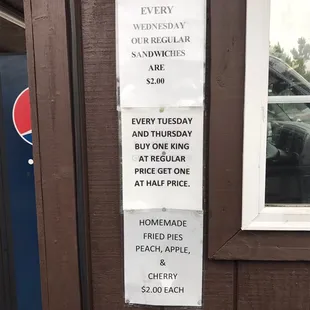 EVERY
WEDNESDAY
OUR REGULAR
SANDWICHES
ARE
$2.00
EVERY TUESDAY
AND THURSDAY
BUY ONE KING
AT REGULAR
PRICE GET ONE
AT HALF PRICE.
HOMEMADE
FRIED PIES
PEACH, APPLE,
&
CHERRY
$2.00 EACH